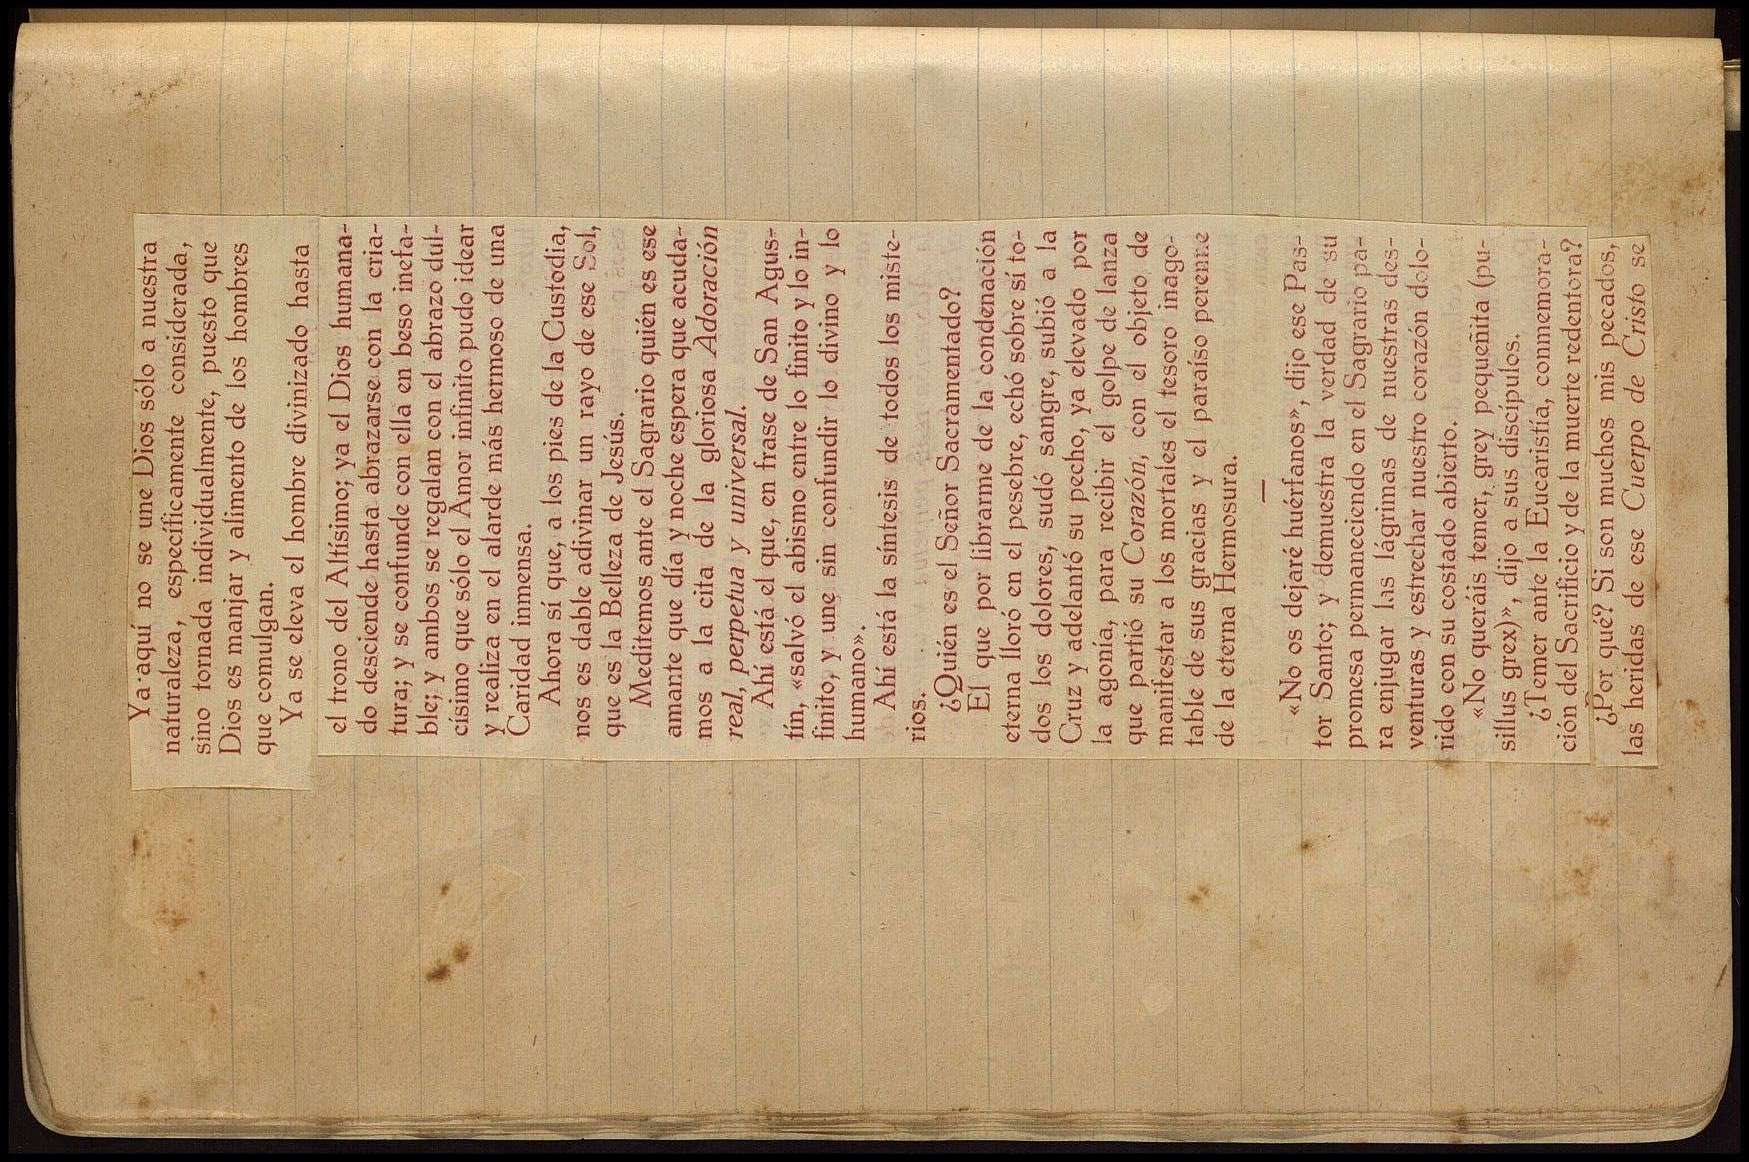 Ya aquí no se une Dios sólo a nuestra
naturaleza, específicamente considerada,
sino tornada individualmente, puesto que
Dios es manjar y alimento de los hombres
que comulgan.
Ya se eleva el hombre divinizado hasta
el trono del Altísimo; ya el Dios humana-
do desciende hasta abrazarse con la cria-
tura; y se confunde con ella en beso inefa-
ble; y ambos se regalan con el abrazo dul-
císimo que sólo el Amor infinito pudo idear
y realiza en el alarde más hermoso de una
Caridad inmensa.
Ahora sí que, a los pies de la Custodia,
nos es dable adivinar un rayo de ese Sol,
que es la Belleza de Jesús.
Meditemos ante el Sagrario quién es ese
amante que día y noche espera que acuda-
mos a la cita de la gloriosa Adoración
real, perpetua y universal.
Ahí está el que, en frase de San Agus-
tín, «salvó el abismo entre lo finito y lo in-
finito, y une sin confundir lo divino y lo
humano».
Ahí está la síntesis de todos los miste-
rios.
¿Quién es el Señor Sacramentado?
El que por librarme de la condenación
eterna lloró en el pesebre, echó sobre sí to-
dos los dolores, sudó sangre, subió a la
Cruz y adelantó su pecho, ya elevado por
la agonía, para recibir el golpe de lanza
que partió su Corazón, con el objeto de
manifestar a los mortales el tesoro inago-
table de sus gracias y el paraíso perenne
de la eterna Hermosura.
—
«No os dejaré huérfanos», dijo ese Pas-
tor Santo; y demuestra la verdad de su
promesa permaneciendo en el Sagrario pa-
ra enjugar las lágrimas de nuestras des-
venturas y estrechar nuestro corazón dolo-
rido con su costado abierto.
«No queráis temer, grey pequeñita (pu-
sillus grex)», dijo a sus discípulos.
¿Temer ante la Eucaristía, conmemora-
ción del Sacrificio y de la muerte redentora?
¿Por qué? Si son muchos mis pecados,
las heridas de ese Cuerpo de Cristo se